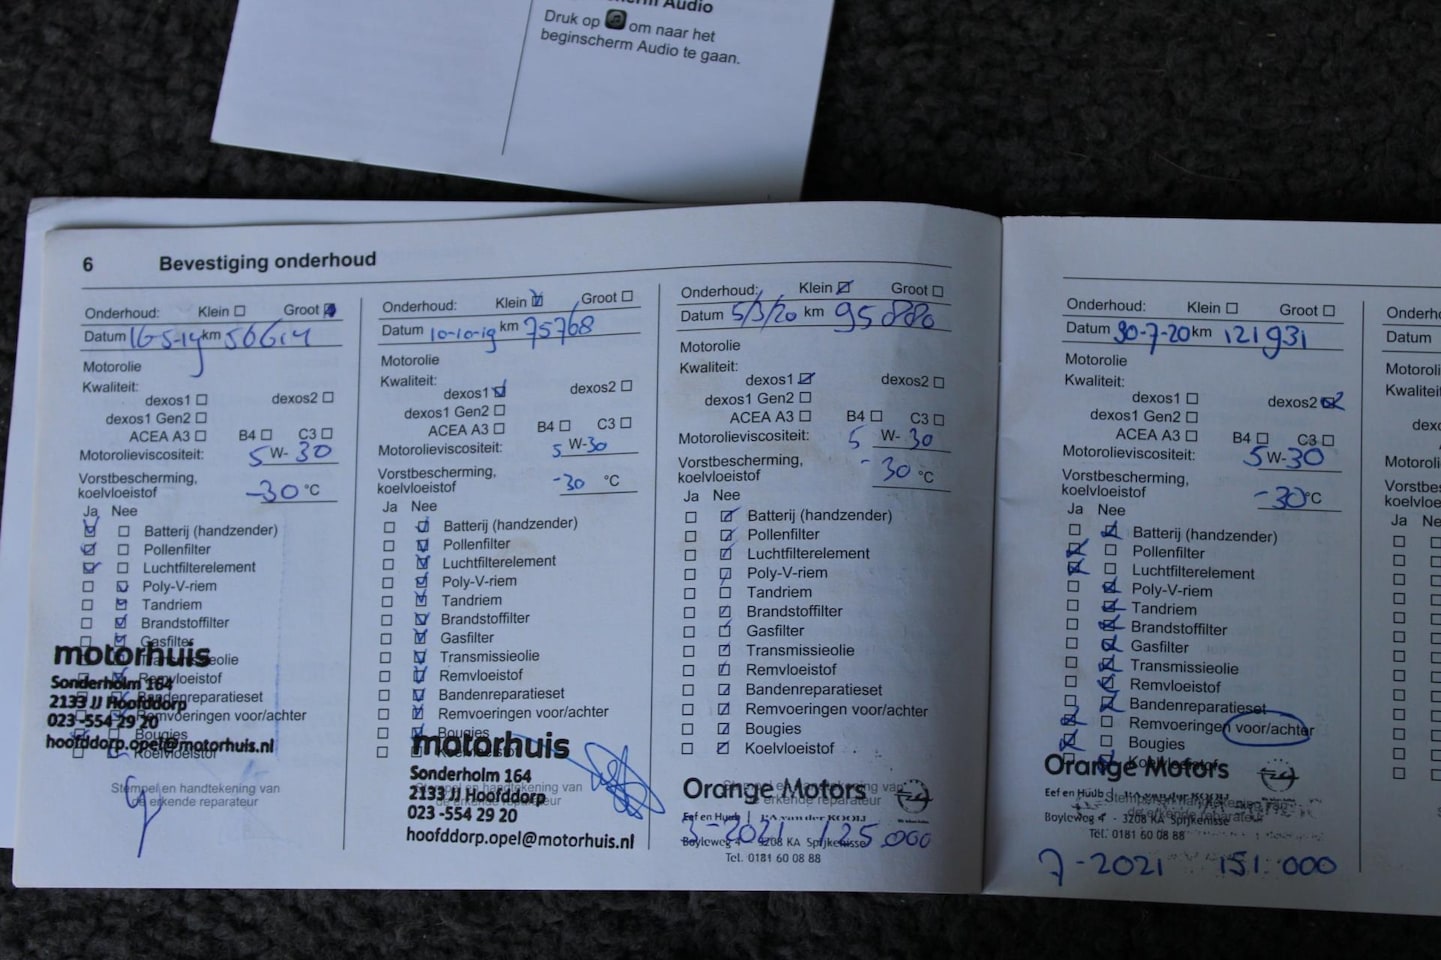 Audio
Druk op om naar het
beginscherm Audio te gaan.
6 Bevestiging onderhoud
Onderhoud: Klein Groot
Datum 16-5-19 km 56614
Motorolie
Kwaliteit:
dexos1 dexos2
dexos1 Gen2
ACEA A3 B4 C3
Motorolieviscositeit: 5 W- 30
Vorstbescherming,
koelvloeistof -30 °C
Ja Nee
Batterij (handzender)
Pollenfilter
Luchtfilterelement
Poly-V-riem
Tandriem
Brandstoffilter
Gasfilter
Transmissieolie
Remvloeistof
Bandenreparatieset
Remvoeringen voor/achter
Bougies
Koelvloeistof
motorhuis
Sonderholm 164
2133 JJ Hoofddorp
023 -554 29 20
hoofddorp.opel@motorhuis.nl
Stempel en handtekening van
de erkende reparateur
Onderhoud: Klein Groot
Datum 10-10-19 km 75768
Motorolie
Kwaliteit:
dexos1 dexos2
dexos1 Gen2
ACEA A3 B4 C3
Motorolieviscositeit: 5 W-30
Vorstbescherming,
koelvloeistof -30 °C
Ja Nee
Batterij (handzender)
Pollenfilter
Luchtfilterelement
Poly-V-riem
Tandriem
Brandstoffilter
Gasfilter
Transmissieolie
Remvloeistof
Bandenreparatieset
Remvoeringen voor/achter
Bougies
motorhuis
Sonderholm 164
2133 JJ Hoofddorp
023 -554 29 20
hoofddorp.opel@motorhuis.nl
Stempel en handtekening van
de erkende reparateur
Onderhoud: Klein Groot
Datum 5/3/20 km 95886
Motorolie
Kwaliteit:
dexos1 dexos2
dexos1 Gen2
ACEA A3 B4 C3
Motorolieviscositeit: 5 W- 30
Vorstbescherming,
koelvloeistof -30 °C
Ja Nee
Batterij (handzender)
Pollenfilter
Luchtfilterelement
Poly-V-riem
Tandriem
Brandstoffilter
Gasfilter
Transmissieolie
Remvloeistof
Bandenreparatieset
Remvoeringen voor/achter
Bougies
Koelvloeistof
Stempel en handtekening van
de erkende reparateur
Orange Motors
Eef en Huub
3-2021 125.000
Boyleweg 4 - 3208 KA Spijkenisse
Tel. 0181 60 08 88
Onderhoud: Klein Groot
Datum 30-7-20 km 121931
Motorolie
Kwaliteit:
dexos1 dexos2
dexos1 Gen2
ACEA A3 B4 C3
Motorolieviscositeit: 5 W-30
Vorstbescherming,
koelvloeistof -30 °C
Ja Nee
Batterij (handzender)
Pollenfilter
Luchtfilterelement
Poly-V-riem
Tandriem
Brandstoffilter
Gasfilter
Transmissieolie
Remvloeistof
Bandenreparatieset
Remvoeringen voor/achter
Bougies
Koelvloeistof
Orange Motors
Eef en Huub
Boyleweg 4 - 3208 KA Spijkenisse
Tel. 0181 60 08 88
7-2021 151.000
Datum
Ja